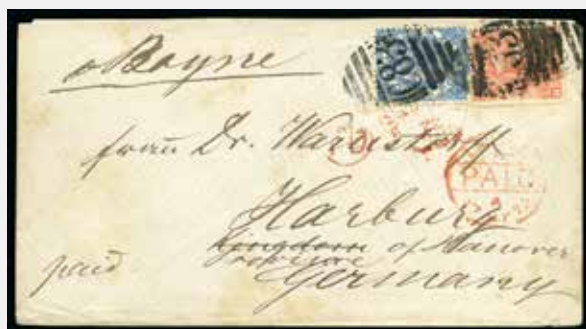 p Boyne
C83
Frau Dr. Warnstorff
PAID
Harburg
Kingdom of Hanover
Province
paid
Germany